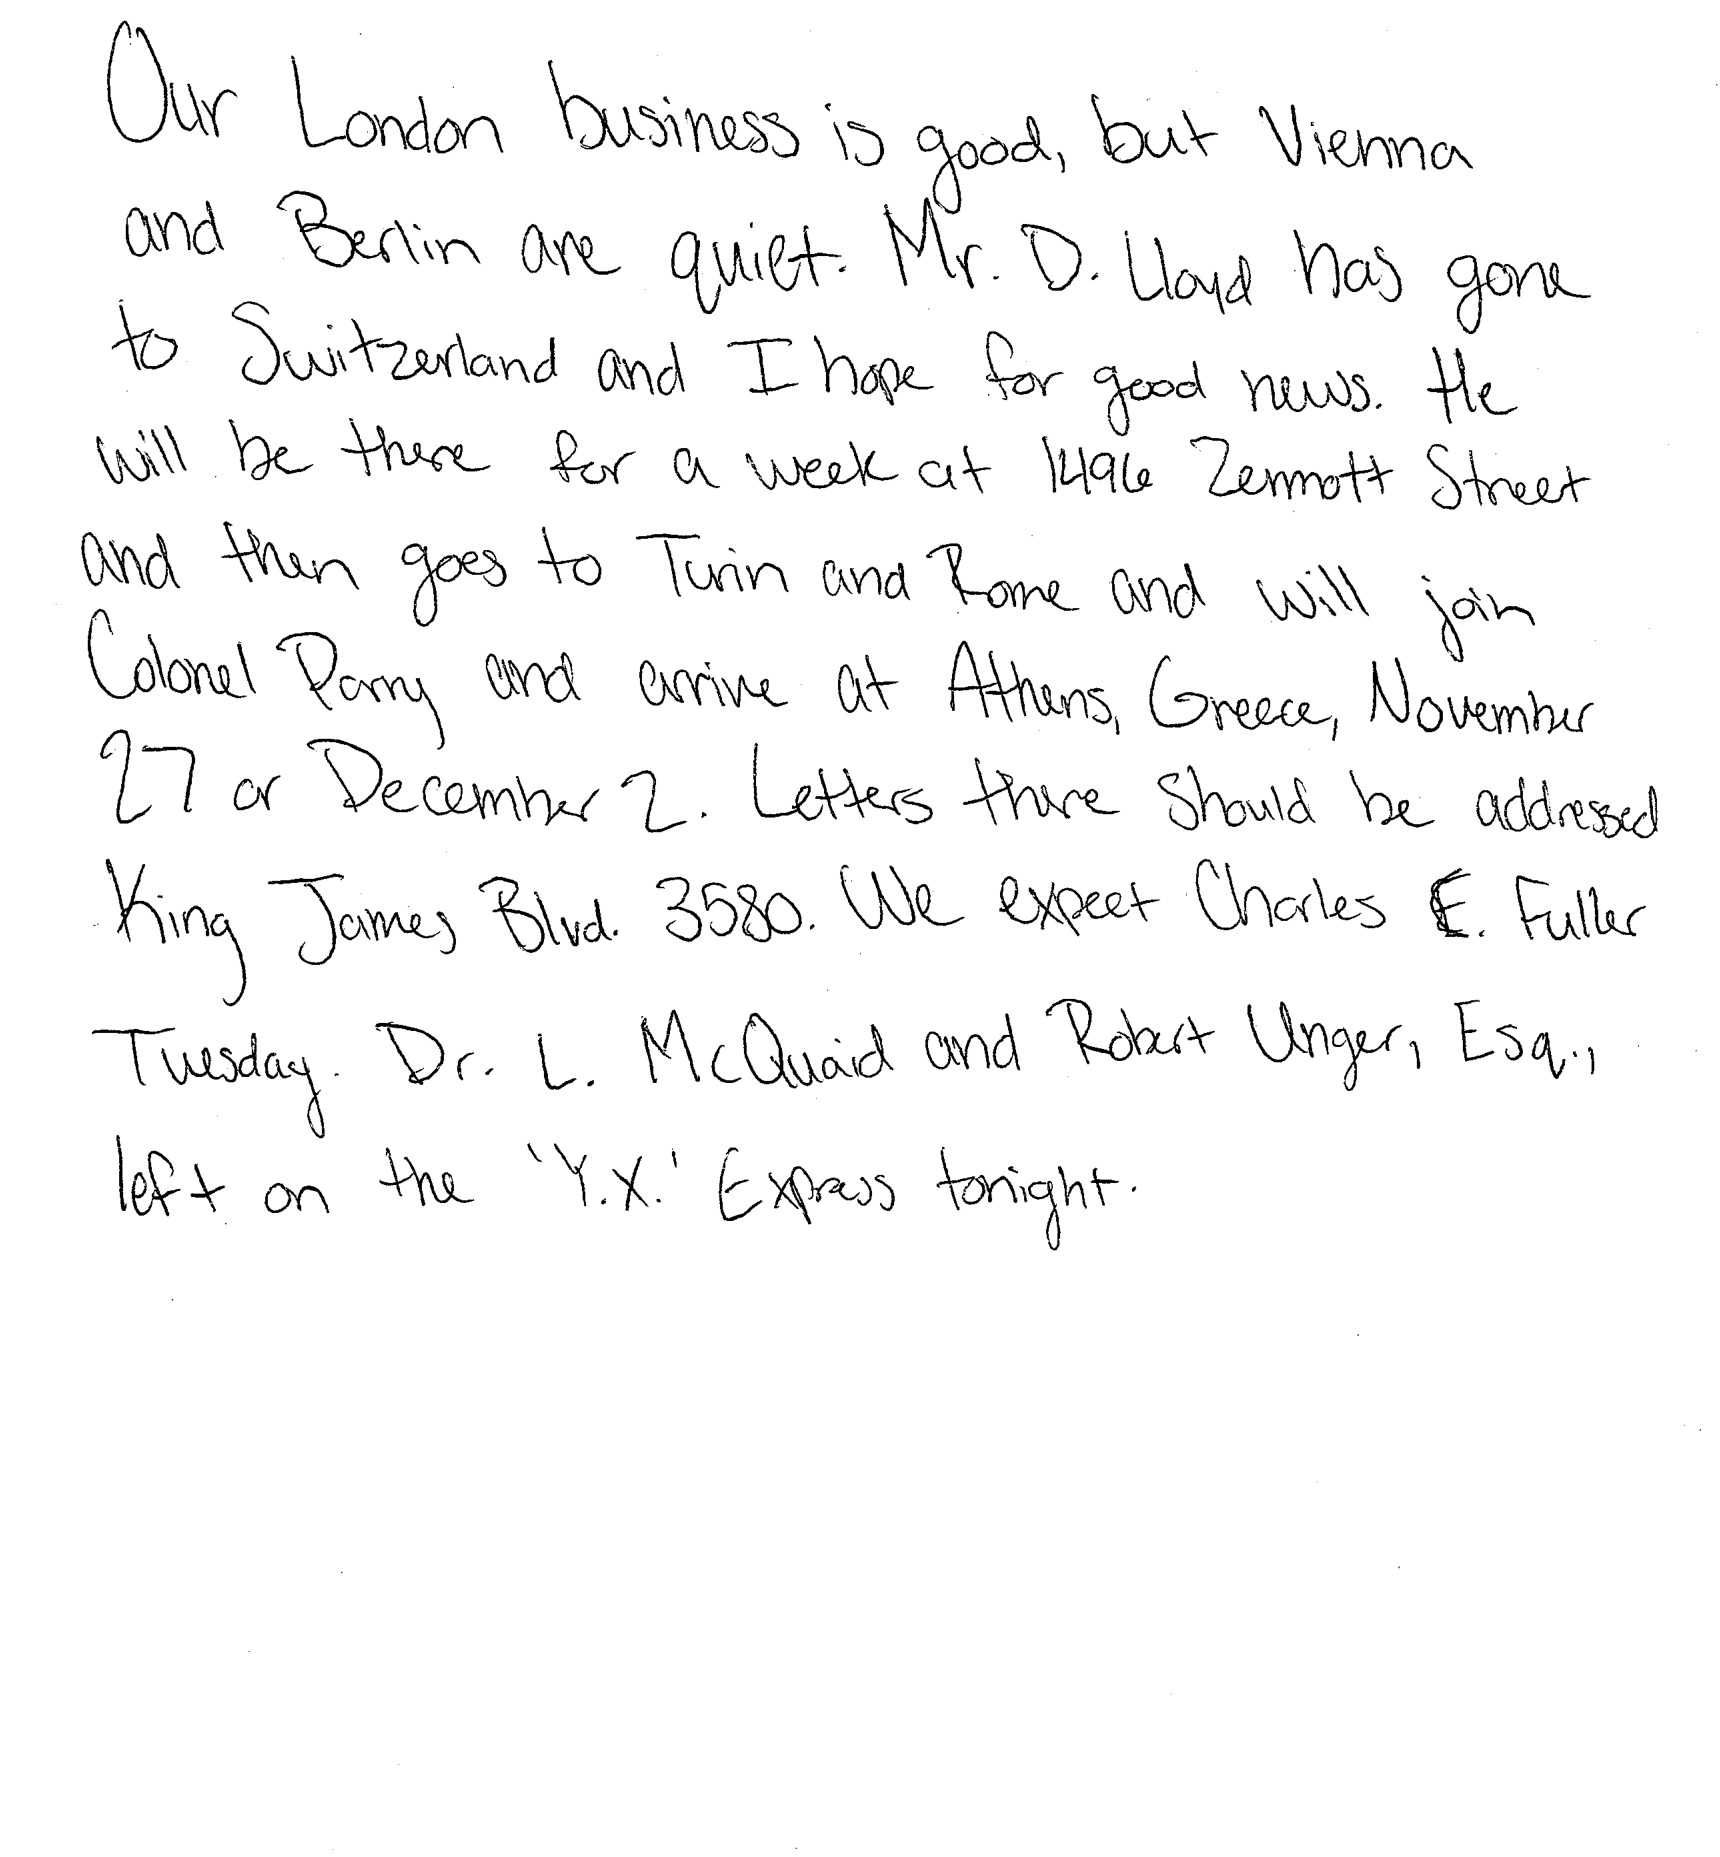 Our London business is good, but Vienna
and Berlin are quiet. Mr. D. Lloyd has gone
to Switzerland and I hope for good news. He
will be there for a week at 1496 Zermott Street
and then goes to Turin and Rome and will join
Colonel Parry and arrive at Athens, Greece, November
27 or December 2. Letters there should be addressed
King James Blvd. 3580. We expect Charles E. Fuller
Tuesday. Dr. L. McQuaid and Robert Unger, Esq.,
left on the 'Y.X.' Express tonight.